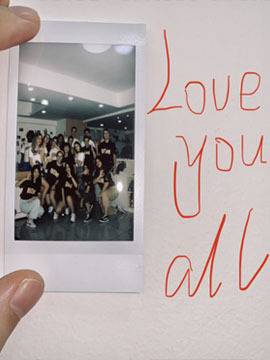 Love
you
all